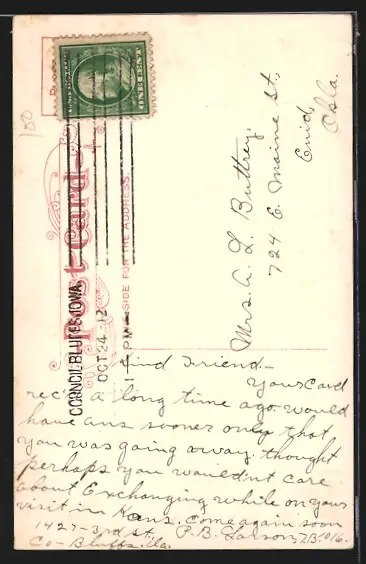 100
ONE CENT
COUNCIL BLUFFS, IOWA.
OCT 24 12
PM
Post Card
SIDE FOR THE ADDRESS
Mrs. A. L. Buttrey,
724 E. Maine st,
Enid,
Okla.
Kind Friend.-
Your Card
rec'd a long time ago. would
have ans sooner only that
you was going away. thought
perhaps you wouldn't care
about Exchanging while on your
visit in Kans. come again soon
1427-3rd st. P. B. Larson,
Co-Bluffs. Ia.